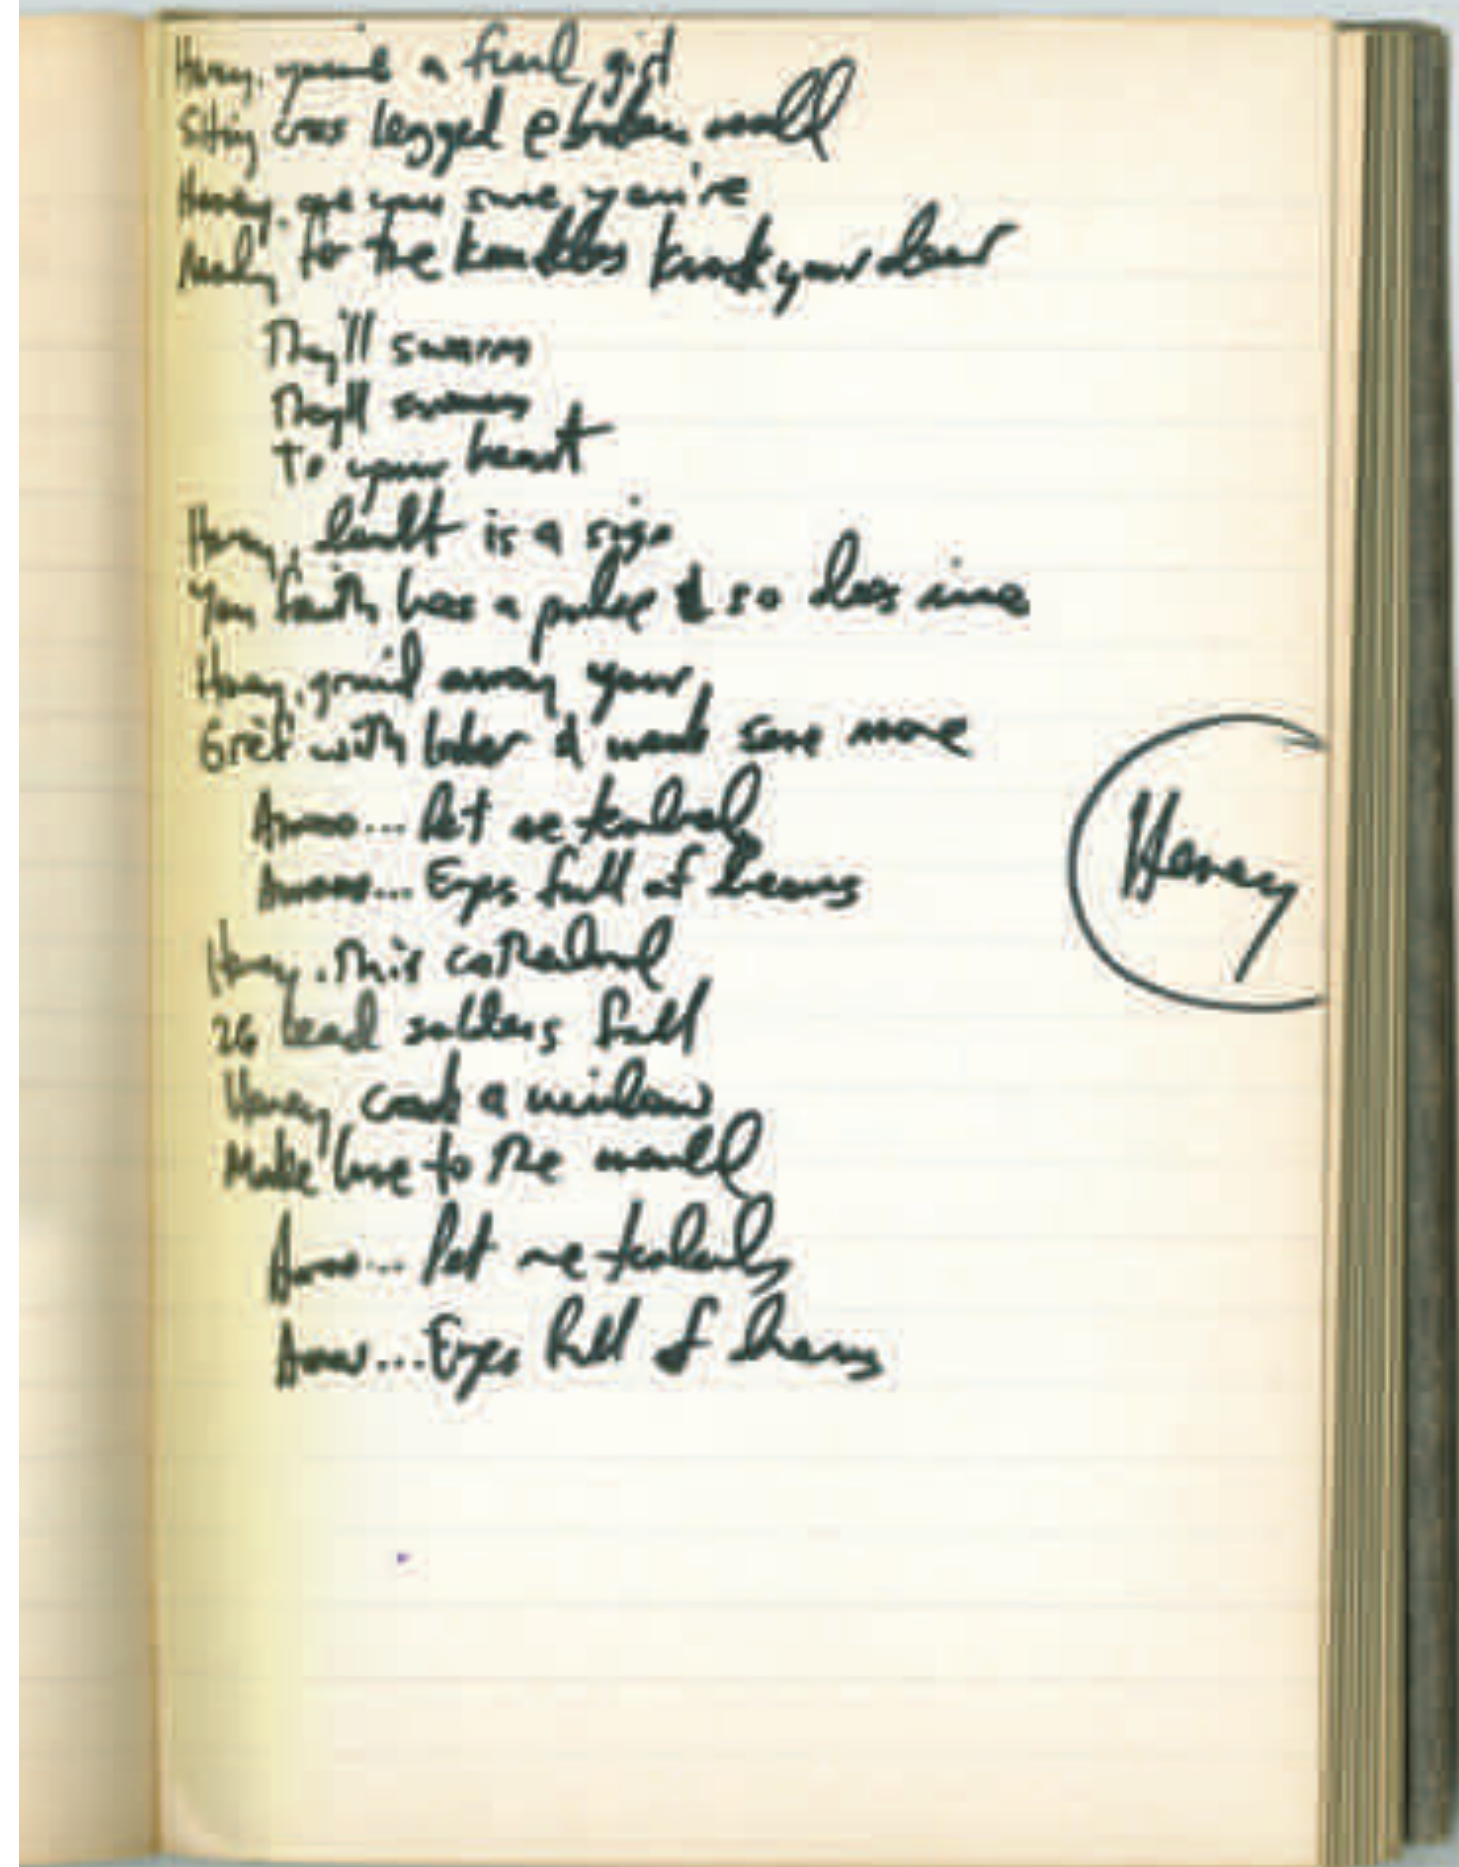 Honey, you're a feral girl
Sitting cross legged @ broken wall
Honey, are you sure you're
Ready for the knuckles knock your door
They'll swarm
They'll swarm
To your heart
Honey, doubt is a sign
Your faith has a pulse & so does mine
Honey, grind away your
Grief with labor & work some more
Awww... Pet me tenderly
Awww... Eyes full of bees
Honey, this cathedral
26 lead soldiers
Honey crack a window
Make love to the world
Awww... Pet me tenderly
Awww... Eyes full of
Honey